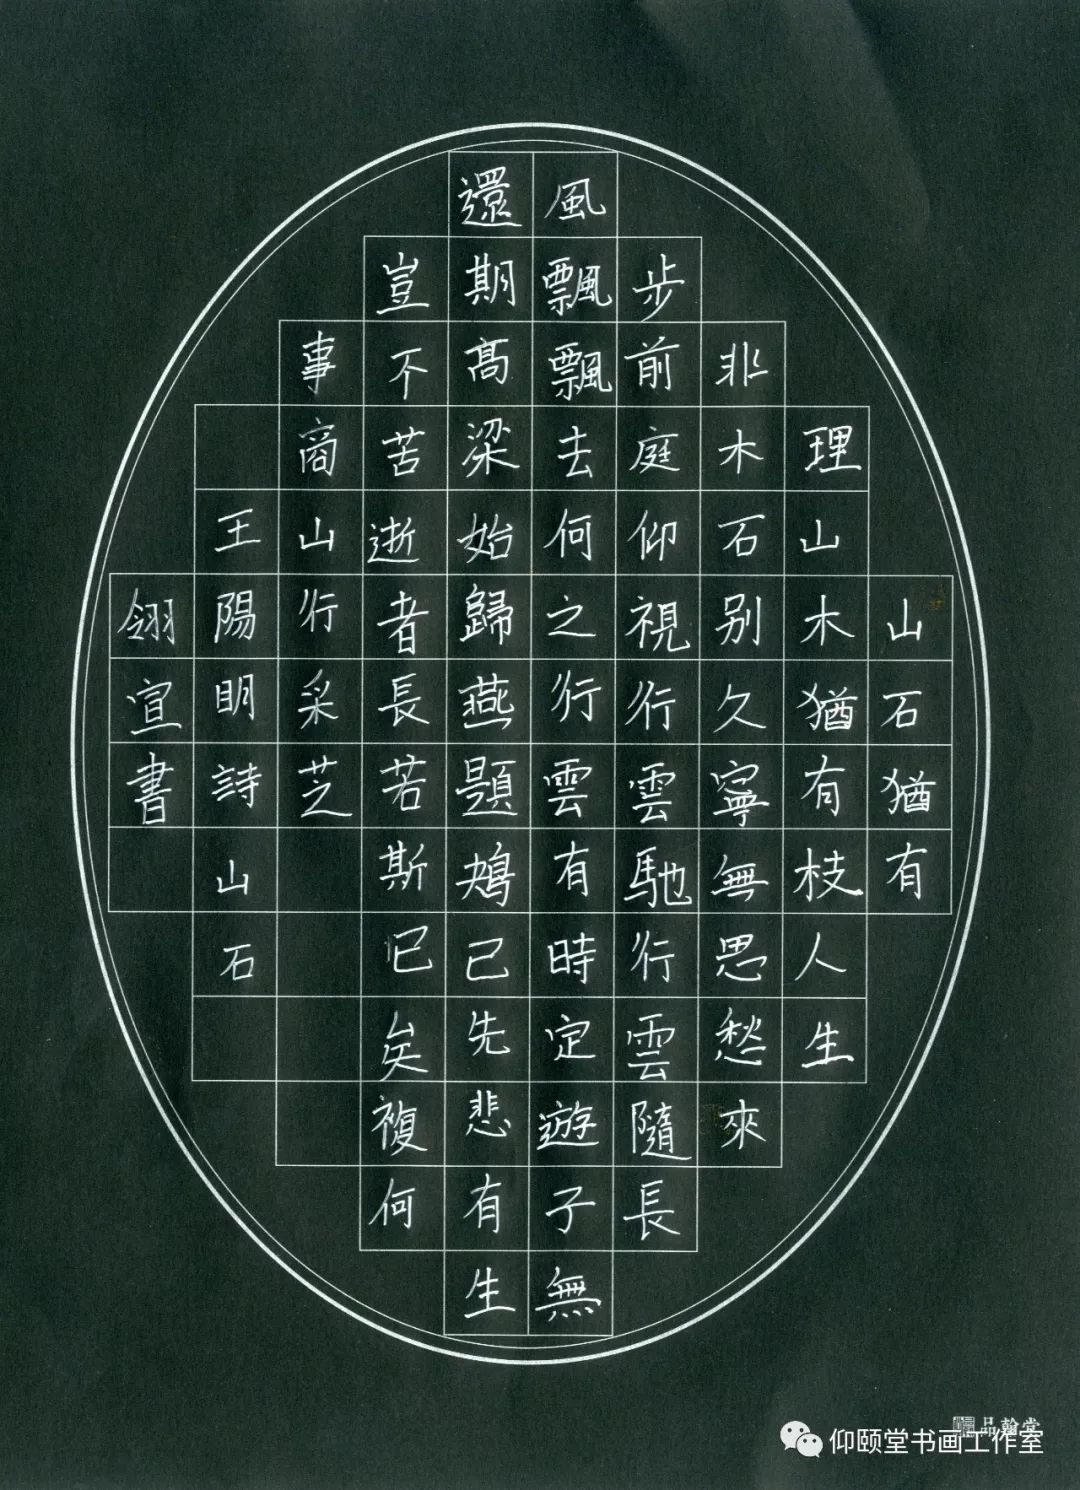 山石猶有
理山木猶有枝人生
非木石别久寧無思愁來
步前庭仰視行雲馳行雲隨長
風飄飄去何之行雲有時定遊子無
還期高梁始歸燕題鴂已先悲有生
豈不苦逝者長若斯已矣複何
事商山行采芝
王陽明詩山石
翎宣書
品翰堂
仰颐堂书画工作室